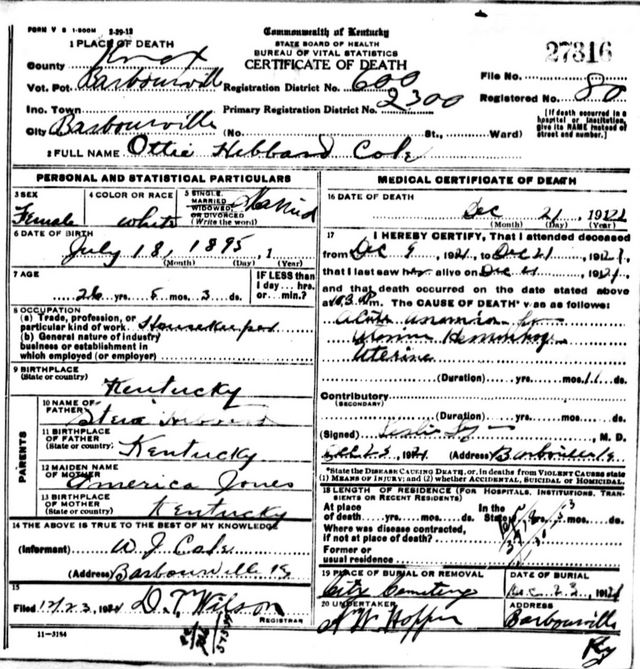 FORM V S 1-500M 2-29-12
Commonwealth of Kentucky
STATE BOARD OF HEALTH
BUREAU OF VITAL STATISTICS
CERTIFICATE OF DEATH
27316
1 PLACE OF DEATH
County Knox
Vot. Pct. Barbourville Registration District No. 600 File No.
Inc. Town Primary Registration District No. 2300 Registered No. 80
City Barbourville (No. St., Ward)
[If death occurred in a hospital or institution, give its NAME instead of street and number.]
2 FULL NAME Ottie Hibbard Cole
PERSONAL AND STATISTICAL PARTICULARS
3 SEX 4 COLOR OR RACE 5 SINGLE, MARRIED WIDOWED, OR DIVORCED (Write the word)
Female White Married
6 DATE OF BIRTH
July 18, 1895, 1
(Month) (Day) (Year)
7 AGE IF LESS than 1 day...hrs. or...min.?
26 yrs. 5 mos. 3 ds.
8 OCCUPATION
(a) Trade, profession, or particular kind of work Housekeeper
(b) General nature of industry business or establishment in which employed (or employer)
9 BIRTHPLACE
(State or country) Kentucky
PARENTS
10 NAME OF FATHER Hibbard
11 BIRTHPLACE OF FATHER
(State or country) Kentucky
12 MAIDEN NAME OF MOTHER America Jones
13 BIRTHPLACE OF MOTHER
(State or country) Kentucky
14 THE ABOVE IS TRUE TO THE BEST OF MY KNOWLEDGE
(Informant) W. J. Cole
(Address) Barbourville Ky
15
Filed 12/23, 1921 D. T. Wilson
REGISTRAR
11-3184
MEDICAL CERTIFICATE OF DEATH
16 DATE OF DEATH
Dec 21, 1921
(Month) (Day) (Year)
17 I HEREBY CERTIFY, That I attended deceased
from Dec 9, 1921, to Dec 21, 1921,
that I last saw her alive on Dec 21, 1921,
and that death occurred on the date stated above
at m. The CAUSE OF DEATH was as follows:
Acute anaemia
Hemorrhage
Uterine
(Duration) yrs. mos. ds.
Contributory
(SECONDARY)
(Duration) yrs. mos. ds.
(Signed) Leslie M. D.
1921 (Address) Barbourville
*State the DISEASE CAUSING DEATH, or, in deaths from VIOLENT CAUSES state (1) MEANS OF INJURY; and (2) whether ACCIDENTAL, SUICIDAL or HOMICIDAL.
18 LENGTH OF RESIDENCE (FOR HOSPITALS, INSTITUTIONS, TRANSIENTS OR RECENT RESIDENTS)
At place of death yrs. mos. ds. In the State yrs. mos. ds.
Where was disease contracted, if not at place of death?
Former or usual residence
19 PLACE OF BURIAL OR REMOVAL DATE OF BURIAL
City Cemetery Dec 23, 1921
20 UNDERTAKER ADDRESS
Hopper Barbourville
Ky